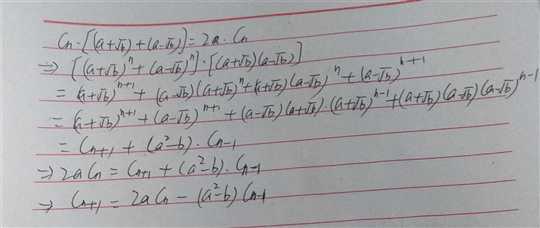 Cn·[(a+√b)+(a-√b)]=2a·Cn
⇒ [(a+√b)^n+(a-√b)^n]·[(a+√b)(a-√b)]
= (a+√b)^{n+1}+(a-√b)(a+√b)^n+(a+√b)(a-√b)^n+(a-√b)^{n+1}
= (a+√b)^{n+1}+(a-√b)^{n+1}+(a-√b)(a+√b)·(a+√b)^{n-1}+(a+√b)(a-√b)(a-√b)^{n-1}
= C_{n+1}+(a²-b)·C_{n-1}
⇒ 2aCn=C_{n+1}+(a²-b)·C_{n-1}
⇒ C_{n+1}=2aCn-(a²-b)C_{n-1}